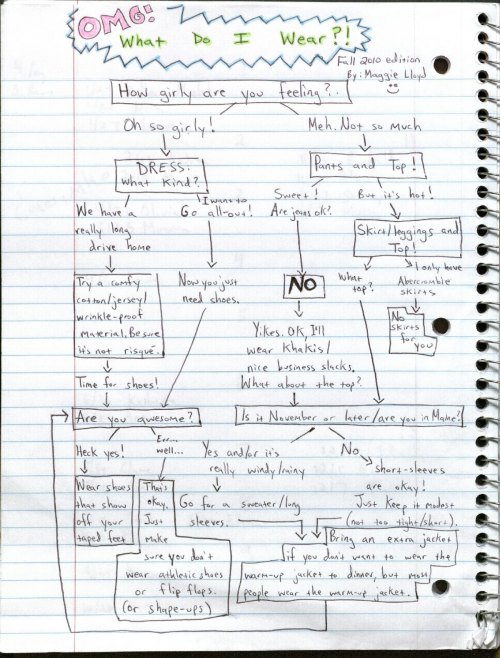 OMG:
What Do I Wear?!
Fall 2010 edition
By: Maggie Lloyd
How girly are you feeling?..
Oh so girly!
Meh. Not so much
DRESS.
What Kind?
Pants and Top!
We have a
really long
drive home
I want to
Go all-out!
Sweet!
Are jeans ok?
But it's hot!
Skirt/leggings and
Top!
Try a comfy
cotton/jersey/
wrinkle-proof
material. Be sure
it's not risqué.
Now you just
need shoes.
NO
What
top?
I only have
Abercrombie
skirts
No
skirts
for
you
Yikes. OK, I'll
wear Khakis/
nice business slacks.
What about the top?
Time for shoes!
Are you awesome?
Is it November or later/are you in Maine?
Heck yes!
Err...
well...
Yes and/or it's
really windy/rainy
No
short-sleeves
are okay!
Just Keep it modest
(not too tight/short).
Wear shoes
that show
off your
taped feet
That's
okay.
Just
make
sure you don't
wear athletic shoes
or flip flops.
(or shape-ups)
Go for a sweater/long
sleeves.
Bring an extra jacket
if you don't want to wear the
warm-up jacket to dinner, but most
people wear the warm-up jacket.